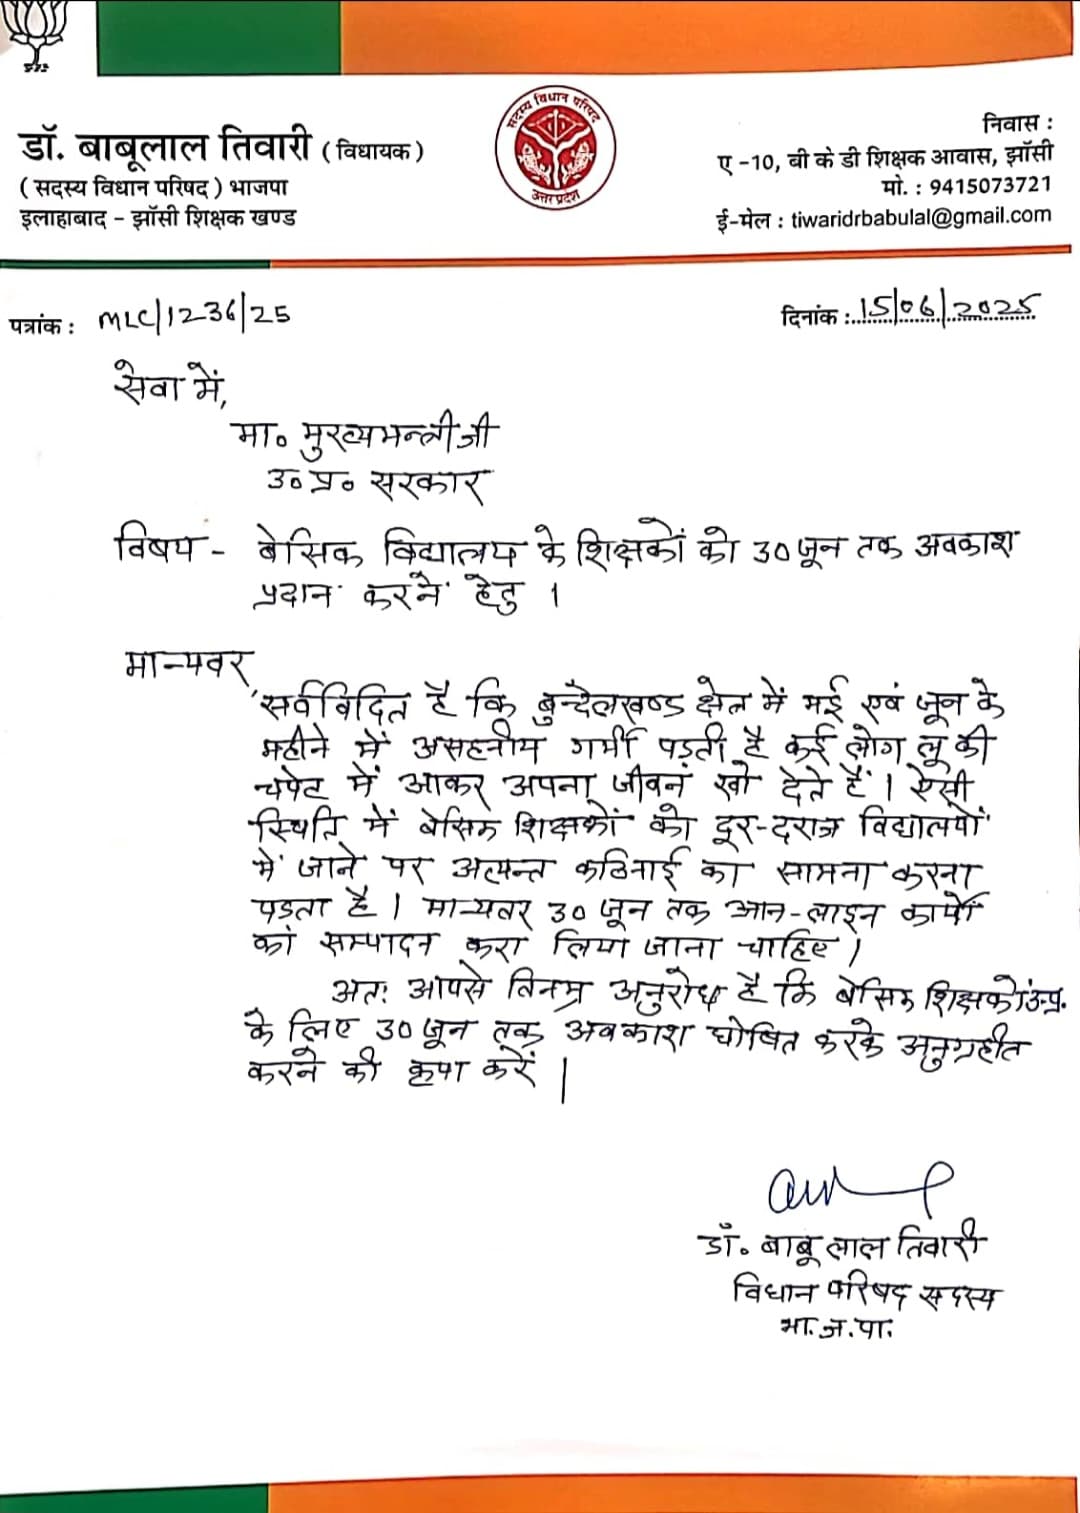 डॉ. बाबूलाल तिवारी (विधायक)
(सदस्य विधान परिषद) भाजपा
इलाहाबाद - झाँसी शिक्षक खण्ड
सदस्य विधान परिषद
उत्तर प्रदेश
निवास :
ए -10, बी के डी शिक्षक आवास, झाँसी
मो. : 9415073721
ई-मेल : tiwaridrbabulal@gmail.com
पत्रांक : MLC/1236/25
दिनांक : 15/06/2025
सेवा में,
मा० मुख्यमन्त्री जी
उ० प्र० सरकार
विषय - बेसिक विद्यालय के शिक्षकों को 30 जून तक अवकाश
प्रदान करने हेतु ।
मान्यवर,
सर्वविदित है कि बुन्देलखण्ड क्षेत्र में मई एवं जून के
महीने में असहनीय गर्मी पड़ती है कई लोग लू की
चपेट में आकर अपना जीवन खो देते हैं । ऐसी
स्थिति में बेसिक शिक्षकों को दूर-दराज विद्यालयों
में जाने पर अत्यन्त कठिनाई का सामना करना
पड़ता है । मान्यवर 30 जून तक आन-लाइन कार्यों
को सम्पादन करा लिया जाना चाहिए ।
अतः आपसे विनम्र अनुरोध है कि बेसिक शिक्षकों उ.प्र.
के लिए 30 जून तक अवकाश घोषित करके अनुग्रहीत
करने की कृपा करें ।
डॉ. बाबू लाल तिवारी
विधान परिषद सदस्य
भा. ज. पा.